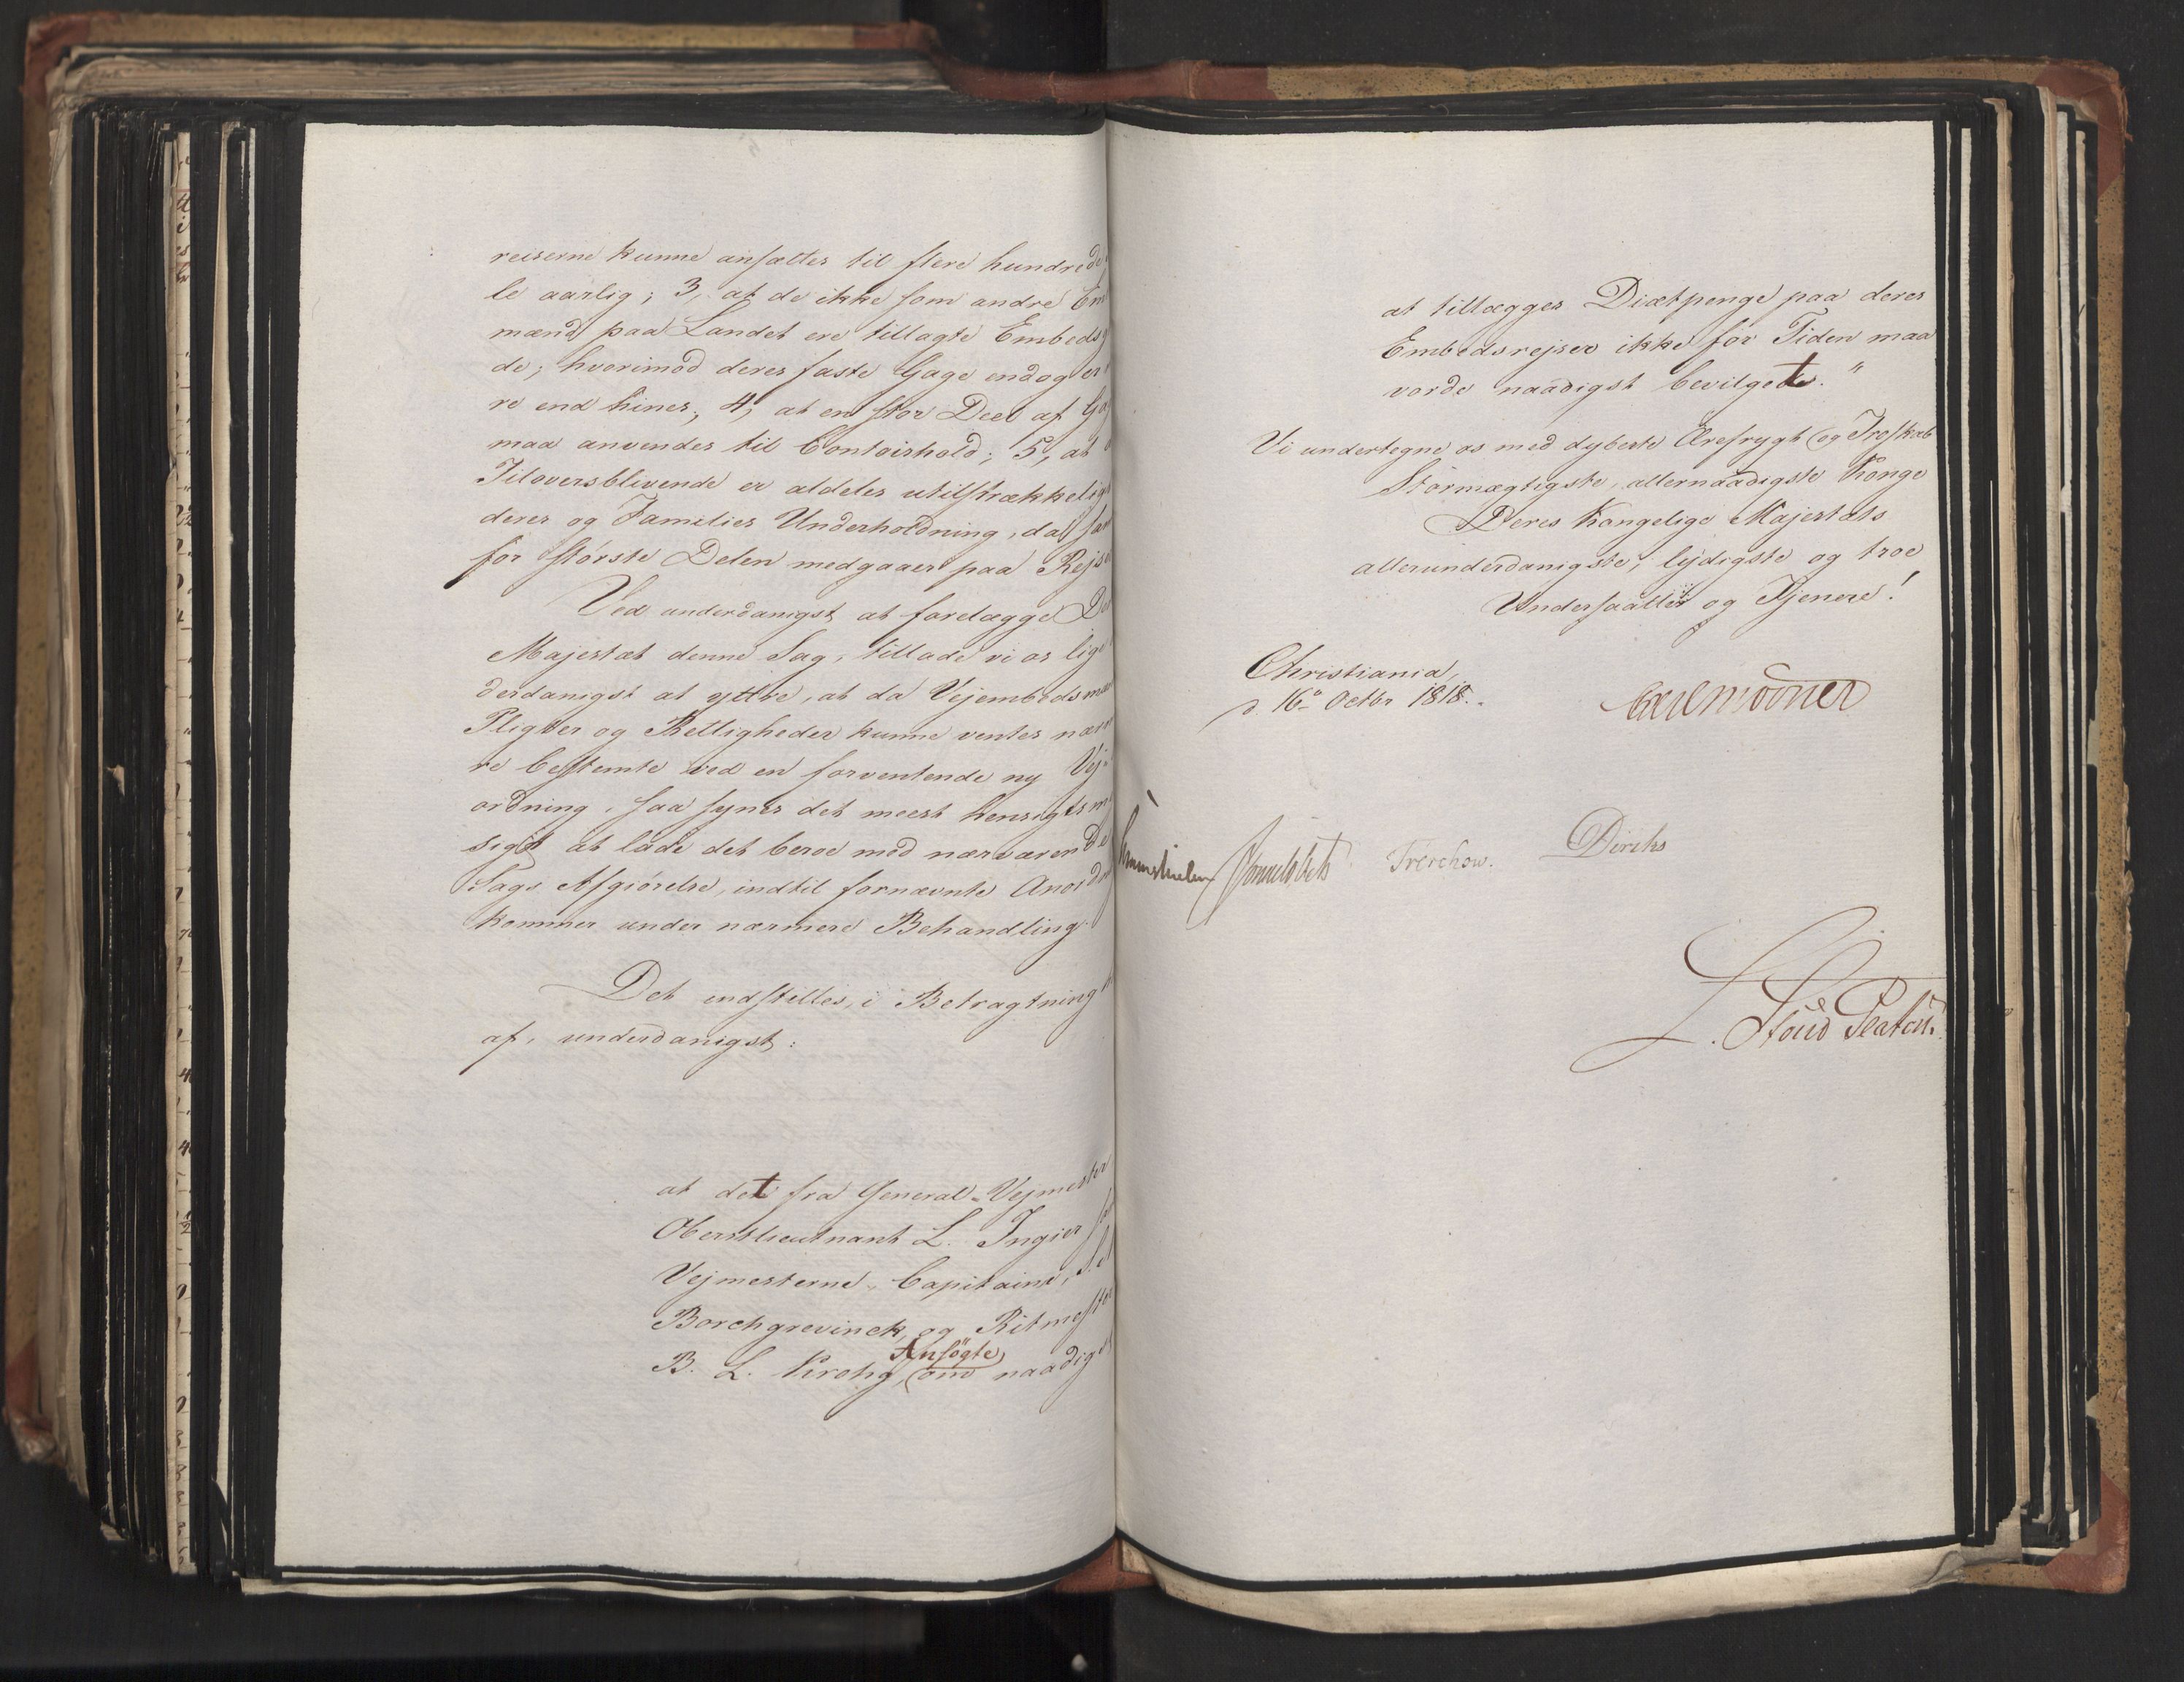 reiserne kunne ansættes til flere hundrede
le aarlig; 3, at de ikke som andre Em
mænd paa Landet ere tillagte Embeds
de; hvorimod deres faste Gage endog er
re end hines; 4, at en stor Deel af Ga
maa anvendes til Contoirhold; 5, at
Tiloversblivende er aldeles utilstrækkelig
deres og Families Underholdning, da
for største Delen medgaaer paa Rejse
Ved underdanigst at forelægge De
Majestæt denne Sag, tillade vi os lige
derdanigst at yttre, at da Vejembedsmæn
Pligter og Rettigheder kunne ventes nær
re bestemte ved en forventende ny Vej
ordning, saa synes det meest hensigtsm
sigst at lade det beroe med nærværende
Sags Afgiörelse, indtil fornævnte Anord
kommer under nærmere Behandling.
Det indstilles, i Betragtning
af, underdanigst:
at det fra General-Vejmester
Oberstlieutnant L. Ingier
Vejmesterne, Capitaine,
Borchgrevinck, og Ritmester
Ansögte
B. L. Krohg, om naadigst
at tillægges Diætpenge paa deres
Embedsrejser ikke for Tiden maa
vorde naadigst bevilget."
Vi undertegne os med dybeste Ærefrygt og Troskab
Stormægtigste, allernaadigste Konge
Deres Kongelige Majestæts
allerunderdanigste, lydigste og troe
Undersaatter og Tjenere!
Christiania,
d. 16de Octbr 1818.
Carl Mörner
Sommerhielm Sommelsbets Treschow. Diriks
L. Stoud Platou